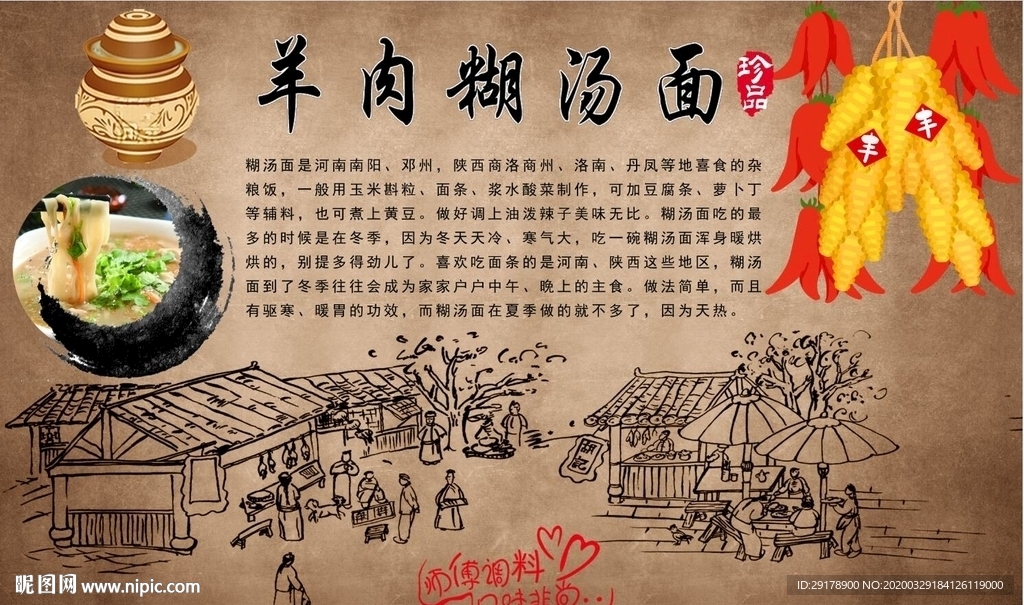 羊肉糊汤面
珍品
丰
丰
糊汤面是河南南阳、邓州，陕西商洛商州、洛南、丹凤等地喜食的杂
粮饭，一般用玉米斟粒、面条、浆水酸菜制作，可加豆腐条、萝卜丁
等辅料，也可煮上黄豆。做好调上油泼辣子美味无比。糊汤面吃的最
多的时候是在冬季，因为冬天天冷、寒气大，吃一碗糊汤面浑身暖烘
烘的，别提多得劲儿了。喜欢吃面条的是河南、陕西这些地区，糊汤
面到了冬季往往会成为家家户户中午、晚上的主食。做法简单，而且
有驱寒、暖胃的功效，而糊汤面在夏季做的就不多了，因为天热。
胡記
师傅调料
口味非尚..
昵图网 www.nipic.com
ID:29178900 NO:20200329184126119000